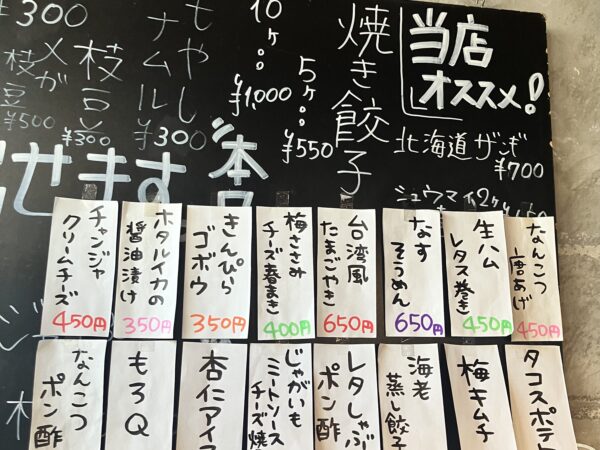 当店
オススメ!
北海道ザンギ
¥700
シュウマイ2ヶ
焼き餃子
5ヶ。。
¥550
10ヶ。。
¥1,000
もやし
ナムル
¥300
枝豆
¥300
枝豆
¥500
¥300
せます
なんこつ
唐あげ
450円
生ハム
レタス巻き
450円
なす
そうめん
650円
台湾風
たまごやき
650円
梅ささみ
チーズ春まき
400円
きんぴら
ゴボウ
350円
ホタルイカの
醤油漬け
350円
チャンジャ
クリームチーズ
450円
タコスポテト
梅キムチ
海老
蒸し餃子
レタしゃぶ
ポン酢
じゃがいも
ミートソース
チーズ焼
杏仁アイス
もろQ
なんこつ
ポン酢